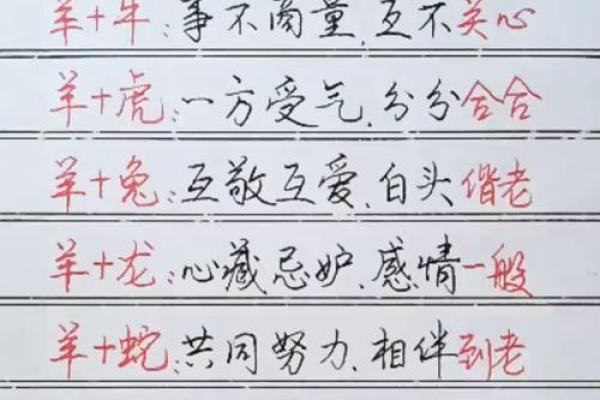 羊+牛:事不商量,互不关心
羊+虎:一方受气,分分合合
羊+兔:互敬互爱,白头偕老
羊+龙:心藏忌妒,感情一般
羊+蛇:共同努力,相伴到老